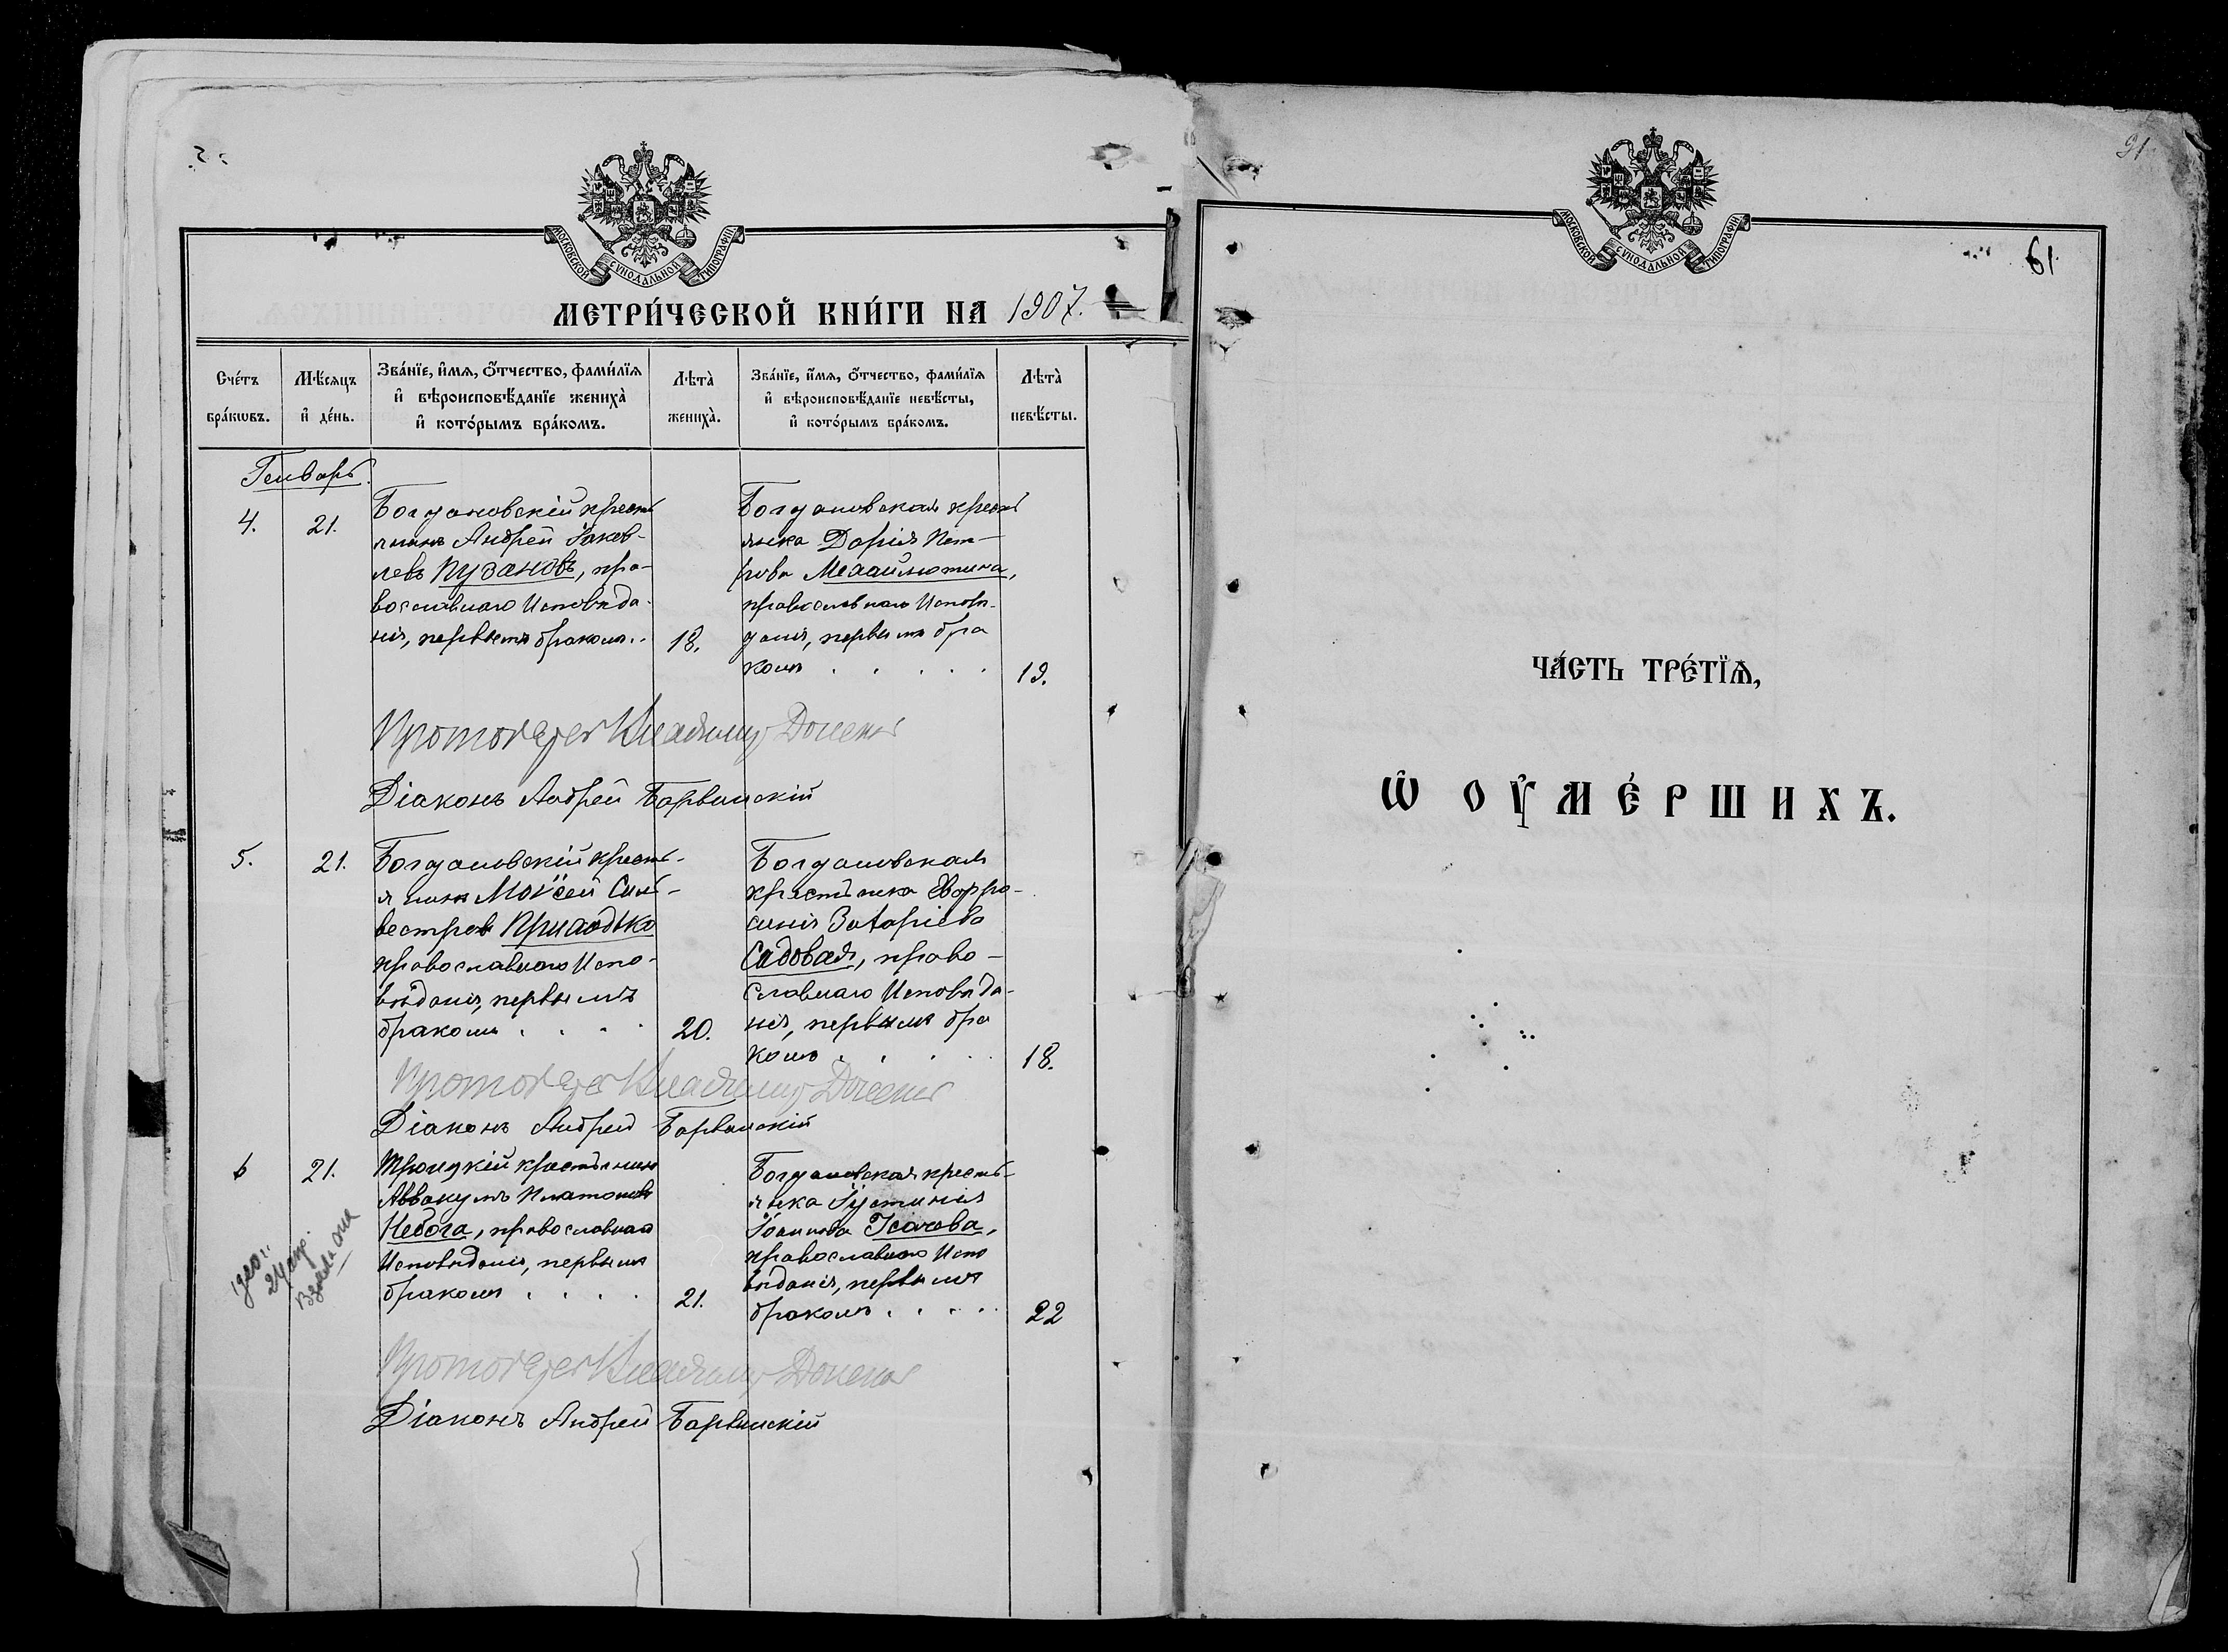 МОСКОВСКОЙ СѴНОДАЛЬНОЙ ТИПОГРАФІИ
МЕТРИ́ЧЕСКОЙ КНИ́ГИ НА 1907.
Сче́тъ бра́кѡвъ.
Мѣ́сяцъ и҆ де́нь.
Зва́нїе, и҆́мѧ, ѻ҆́тчество, фами́лїѧ
и҆ вѣроисповѣ́данїе жениха̀
и҆ кото́рымъ бра́комъ.
Лѣта̀ жениха̀.
Зва́нїе, и҆́мѧ, ѻ҆́тчество, фами́лїѧ
и҆ вѣроисповѣ́данїе невѣ́сты,
и҆ кото́рымъ бра́комъ.
Лѣта̀ невѣ́сты.
Генварь.
4.
21.
Богдановскій кресть
янинъ Андрей Іаков-
левъ Пузановъ, пра-
вославнаго Исповѣда-
нія, первымъ бракомъ..
18.
Богдановская кресть
янка Дарія Пет-
рова
православнаго Исповѣ-
данія, первымъ бра
комъ . . . . .
19.
Протоіерей Владиміръ
Діаконъ Андрей Барвинскій
5.
21.
Богдановскій кресть-
янинъ Моѵсей Силь-
вестровъ Приходько
православнаго Испо-
вѣданія, первымъ
бракомъ . . . .
20.
Богдановская
крестьянка Евфро-
синія Захаріева
Садовая, право-
славнаго Исповѣда-
нія, первымъ бра
комъ . . . .
18.
Протоіерей Владиміръ
Діаконъ Андрей Барвинскій
6
21.
Троицкій крестьянинъ
Аввакумъ Платоновъ
Небога, православнаго
Исповѣданія, первымъ
бракомъ . . . .
21.
Богдановская кресть-
янка Іустинія
Іоаннова Исачева,
православнаго Испо
вѣданія, первымъ
бракомъ . . . .
22
Протоіерей Владиміръ
Діаконъ Андрей Барвинскій
91
МОСКОВСКОЙ СѴНОДАЛЬНОЙ ТИПОГРАФІИ
61
ЧА́СТЬ ТРЕ́ТЇѦ,
Ѡ҆ ОУ҆МЕ́РШИХЪ.